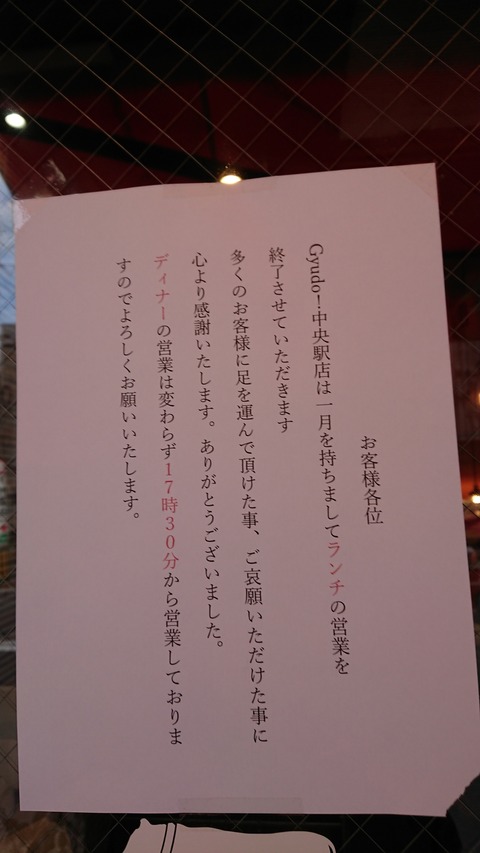 お客様各位
Gyudo!中央駅店は一月を持ちましてランチの営業を
終了させていただきます
多くのお客様に足を運んで頂けた事、ご哀願いただけた事に
心より感謝いたします。ありがとうございました。
ディナーの営業は変わらず17時30分から営業しておりま
すのでよろしくお願いいたします。